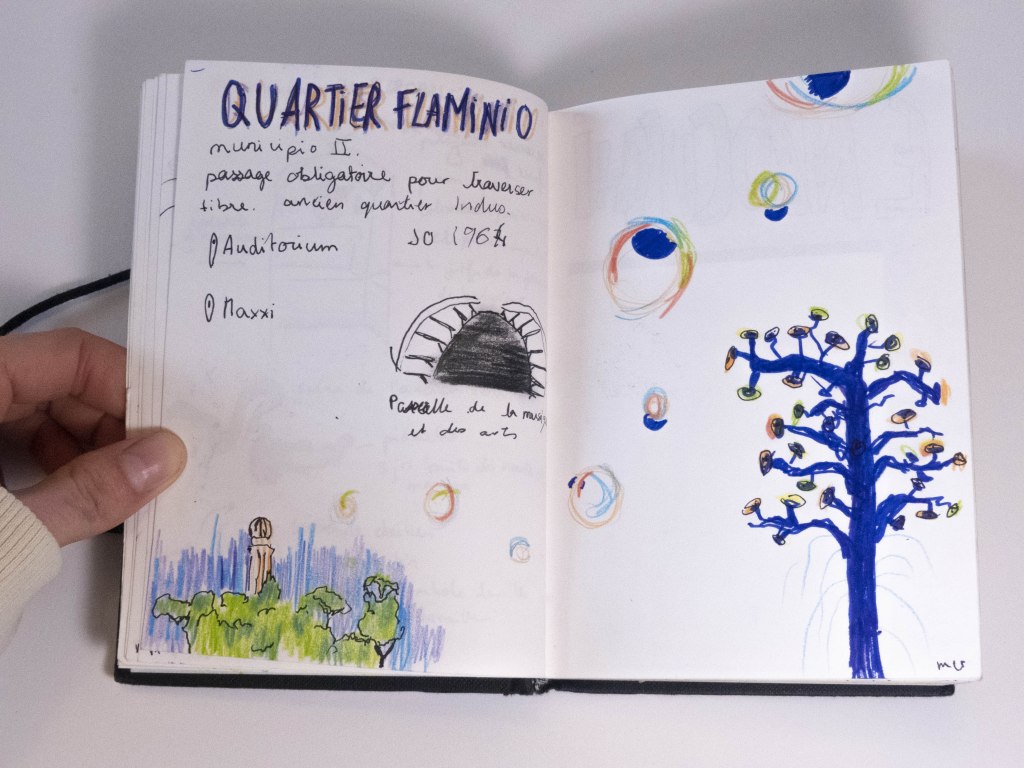 QUARTIER FLAMINIO
municipio II.
passage obligatoire pour traverser
tibre. ancien quartier Indus.
Auditorium JO 196
Maxxi
de la
et des arts